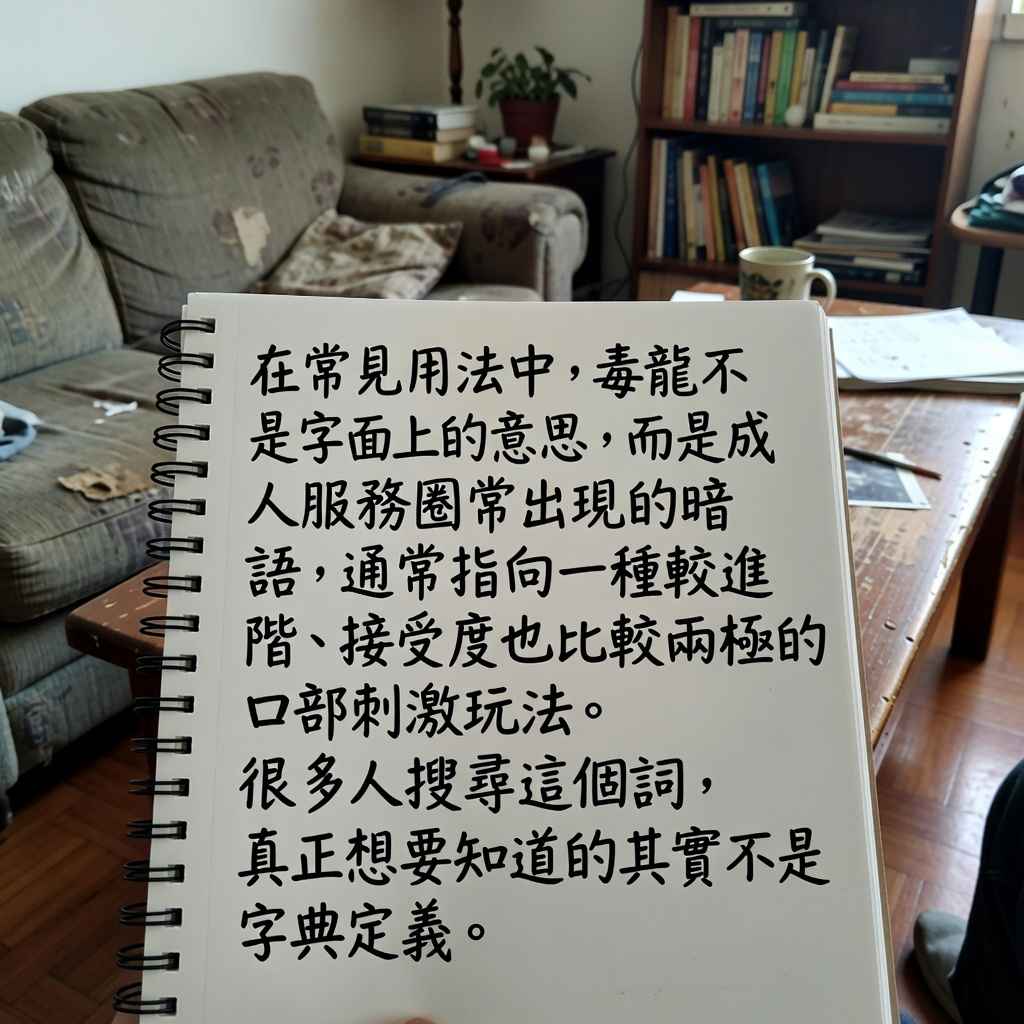 在常見用法中，毒龍不
是字面上的意思，而是成
人服務圈常出現的暗
語，通常指向一種較進
階、接受度也比較兩極的
口部刺激玩法。
很多人搜尋這個詞，
真正想要知道的其實不是
字典定義。